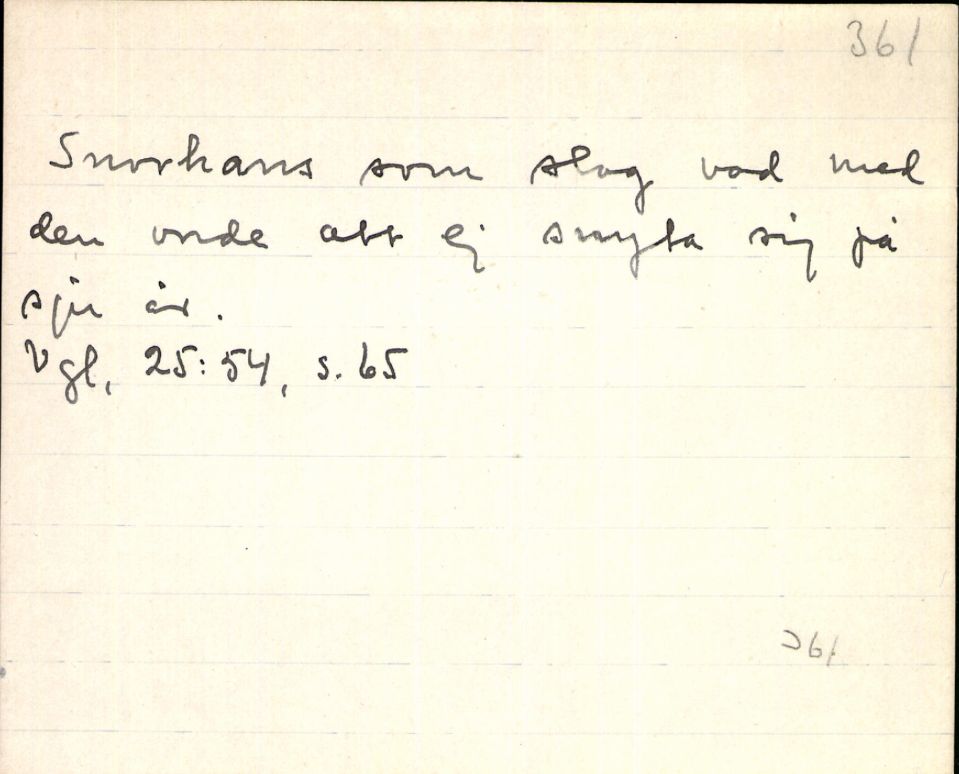 361
Snorhans som slog vad med
den onde att ej snyta sig på
sju år.
Vgl, 25:54, s. 65
361